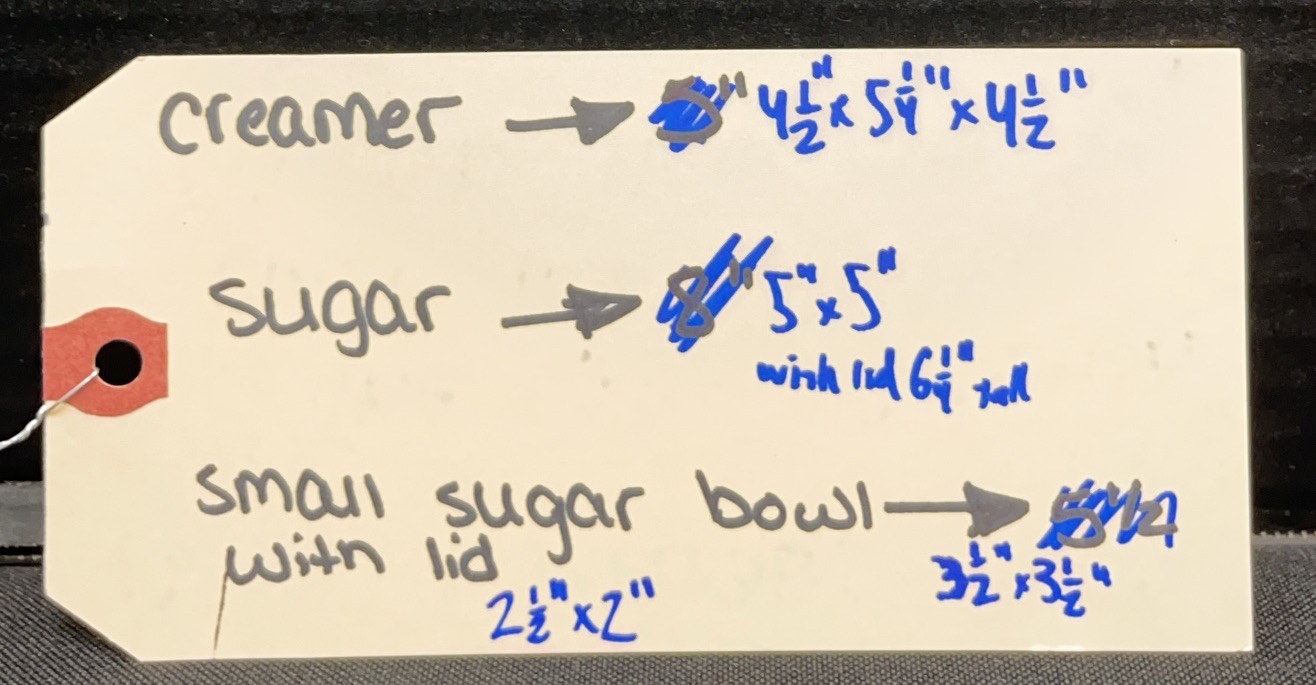 creamer → 5" 4 1/2" x 5 1/4" x 4 1/2"
sugar → 8" 5" x 5"
with lid 6 1/4" tall
small sugar bowl → 5 1/2
with lid 3 1/2" x 3 1/2"
2 1/2" x 2"